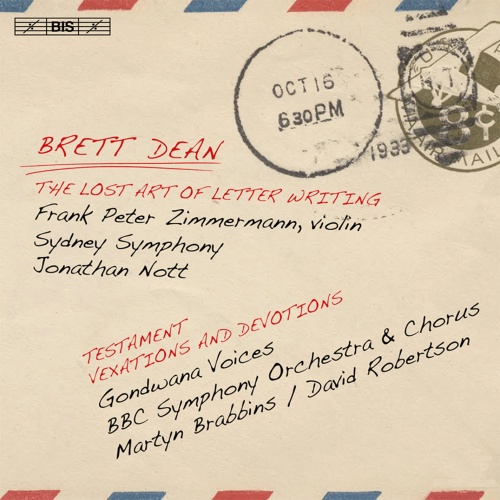 BIS
OCT 16
6 30 PM
1933
AIR MAIL
BRETT DEAN
THE LOST ART OF LETTER WRITING
Frank Peter Zimmermann, violin
Sydney Symphony
Jonathan Nott
TESTAMENT
VEXATIONS AND DEVOTIONS
Gondwana Voices
BBC Symphony Orchestra & Chorus
Martyn Brabbins / David Robertson